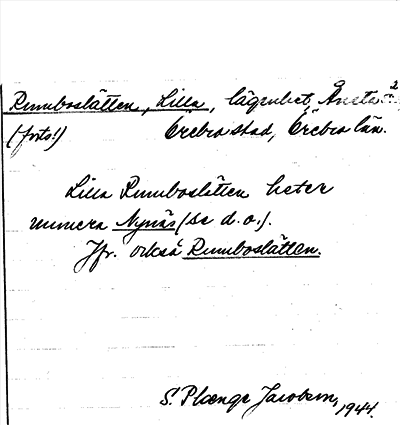 Rumboslätten, Lilla, lägenhet, Ånsta
2
(forts!) Örebro stad, Örebro län.
Lilla Rumboslätten heter
numera Nynäs (se d.o.).
Jfr. också Rumboslätten.
S. Plænge Jacobson, 1944.